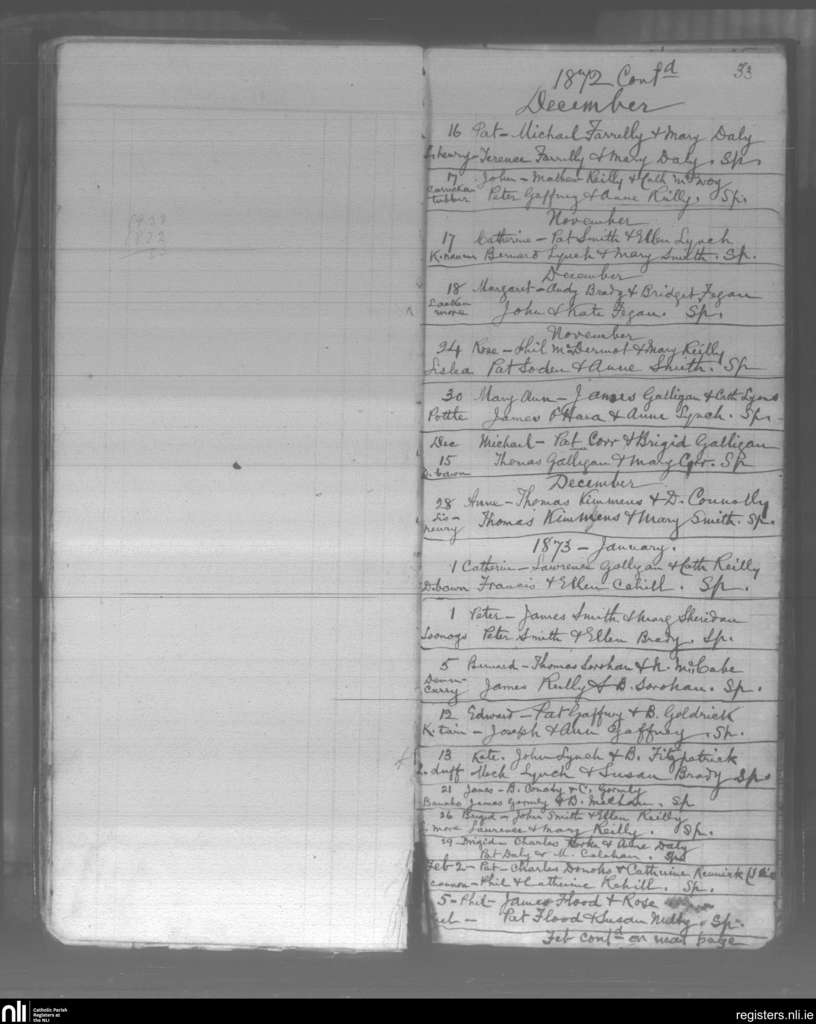 33
1872 Contd
December
16 Pat - Michael Farrelly & Mary Daly
Terence Farrelly & Mary Daly. Sp.
17 John - Mathew Reilly & Cath McEvoy
Peter Gaffney & Anne Reilly. Sp.
November
17 Catherine - Pat Smith & Ellen Lynch
Bernard Lynch & Mary Smith. Sp.
December
18 Margaret - Andy Brady & Bridget Fegan
more John & Kate Fegan. Sp.
November
24 Rose - Phil McDermot & Mary Reilly
Lislea Pat Soden & Anne Smith. Sp
30 Mary Ann - James Galligan & Cath Lyons
Pottle James O'Hara & Anne Lynch. Sp.
Dec Michael - Pat Corr & Brigid Galligan
15 Thomas Galligan & Mary Corr. Sp
D.bawn
December
28 Anne - Thomas Kimmens & D. Connolly
Thomas Kimmens & Mary Smith. Sp.
1873 - January.
1 Catherine - Lawrence Galligan & Cath Reilly
D.bawn Francis & Ellen Cahill. Sp.
1 Peter - James Smith & Marg Sheridan
Peter Smith & Ellen Brady. Sp.
5 Bernard - Thomas Sorohan & McCabe
James Reilly & B. Sorohan. Sp.
12 Edward - Pat Gaffney & B. Goldrick
Joseph & Ann Gaffney. Sp.
13 Kate. John Lynch & B. Fitzpatrick
duff Lynch & Susan Brady Sp.
21 James - B. & C. Gormly
James Gormly & B. Meehan. Sp
26 Brigid - John Smith & Ellen Reilly
more Lawrence & Mary Reilly. Sp.
29 Brigid - Charles & Anne Daly
Pat Daly & M. Calahan. Sp.
Feb 2 - Pat - Charles Donohoe & Catherine
Phil & Catherine Kahill. Sp.
5 - Phil - James Flood & Rose
Feb - Pat Flood & Susan Sp.
Feb contd on next page
nli
Catholic Parish
Registers at
the NLI
registers.nli.ie